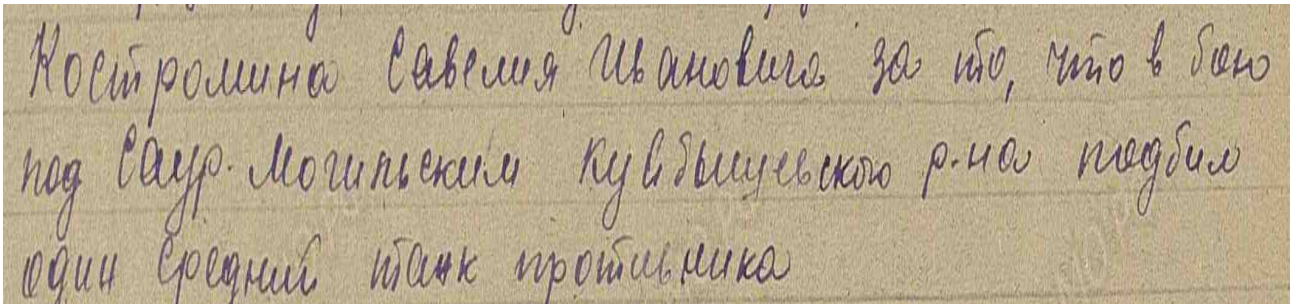 Костромина Савелия Ивановича за то, что в бою
под Саур-Могильским Куйбышевского р-на подбил
один средний танк противника